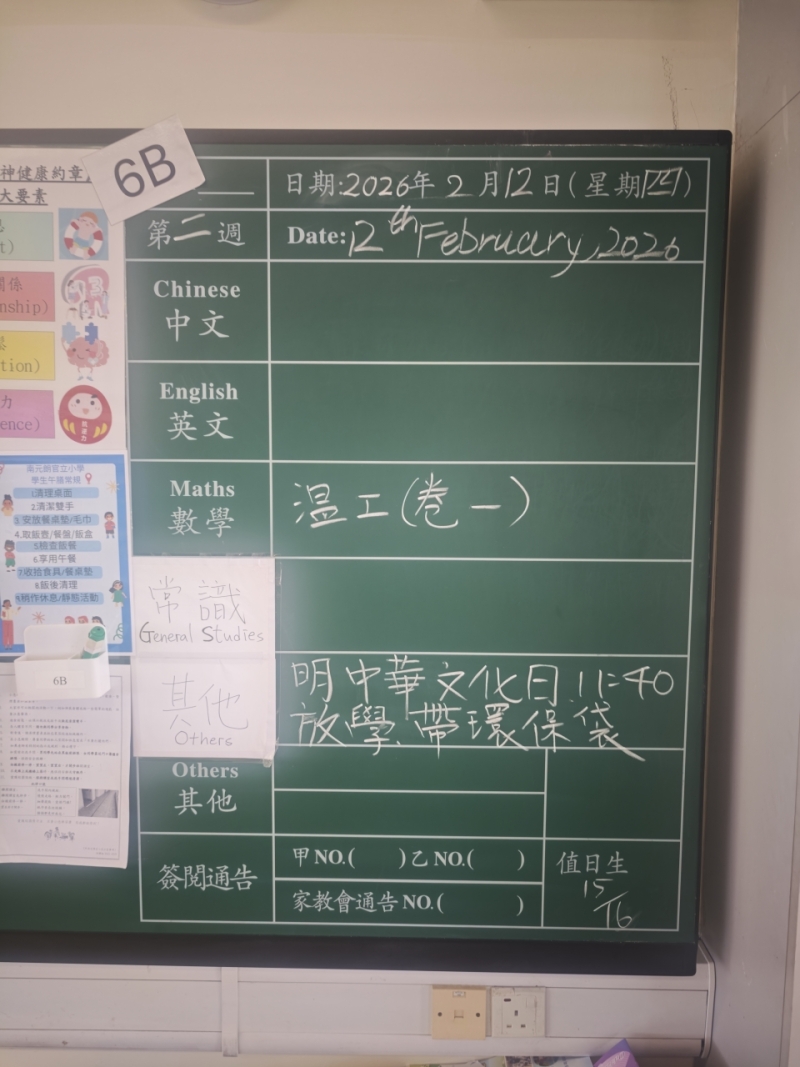 神健康約章
大要素
6B
日期:2026年2月12日(星期四)
第二週
Date: 12th February, 2026
Chinese
中文
English
英文
Maths
數學
温工(卷一)
常識
General Studies
其他
Others
明中華文化日11:40
放學、帶環保袋
Others
其他
簽閱通告
甲NO.( )乙NO.( )
家教會通告NO.( )
值日生
15
16
t)
關係
nship)
tion)
力
ence)
南元朗官立小學
學生午膳常規
1.清理桌面
2.清潔雙手
3.安放餐桌墊/毛巾
4.取飯壺/餐盤/飯盒
5.檢查飯餐
6.享用午餐
7.收拾食具/餐桌墊
8.飯後清理
9.稍作休息/靜態活動
6B